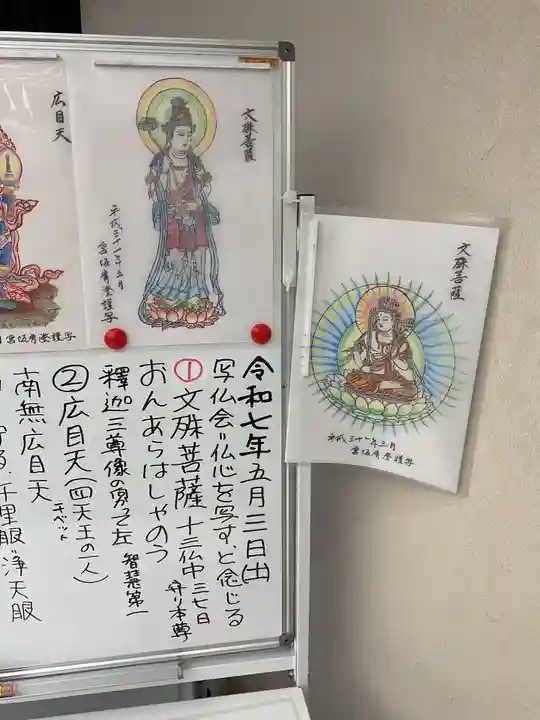 広目天
文殊菩薩
平成三十一年三月
文殊菩薩
平成三十一年三月
令和七年五月三日(土)
写仏会"仏心を写すと念じる
① 文殊菩薩 十三仏中 三七日
守り本尊
おんあらはしゃのう
釋迦三尊像の向って左 智慧第一
② 広目天(四天王の一人)
チベット
南無広目天
千里眼"浄天眼